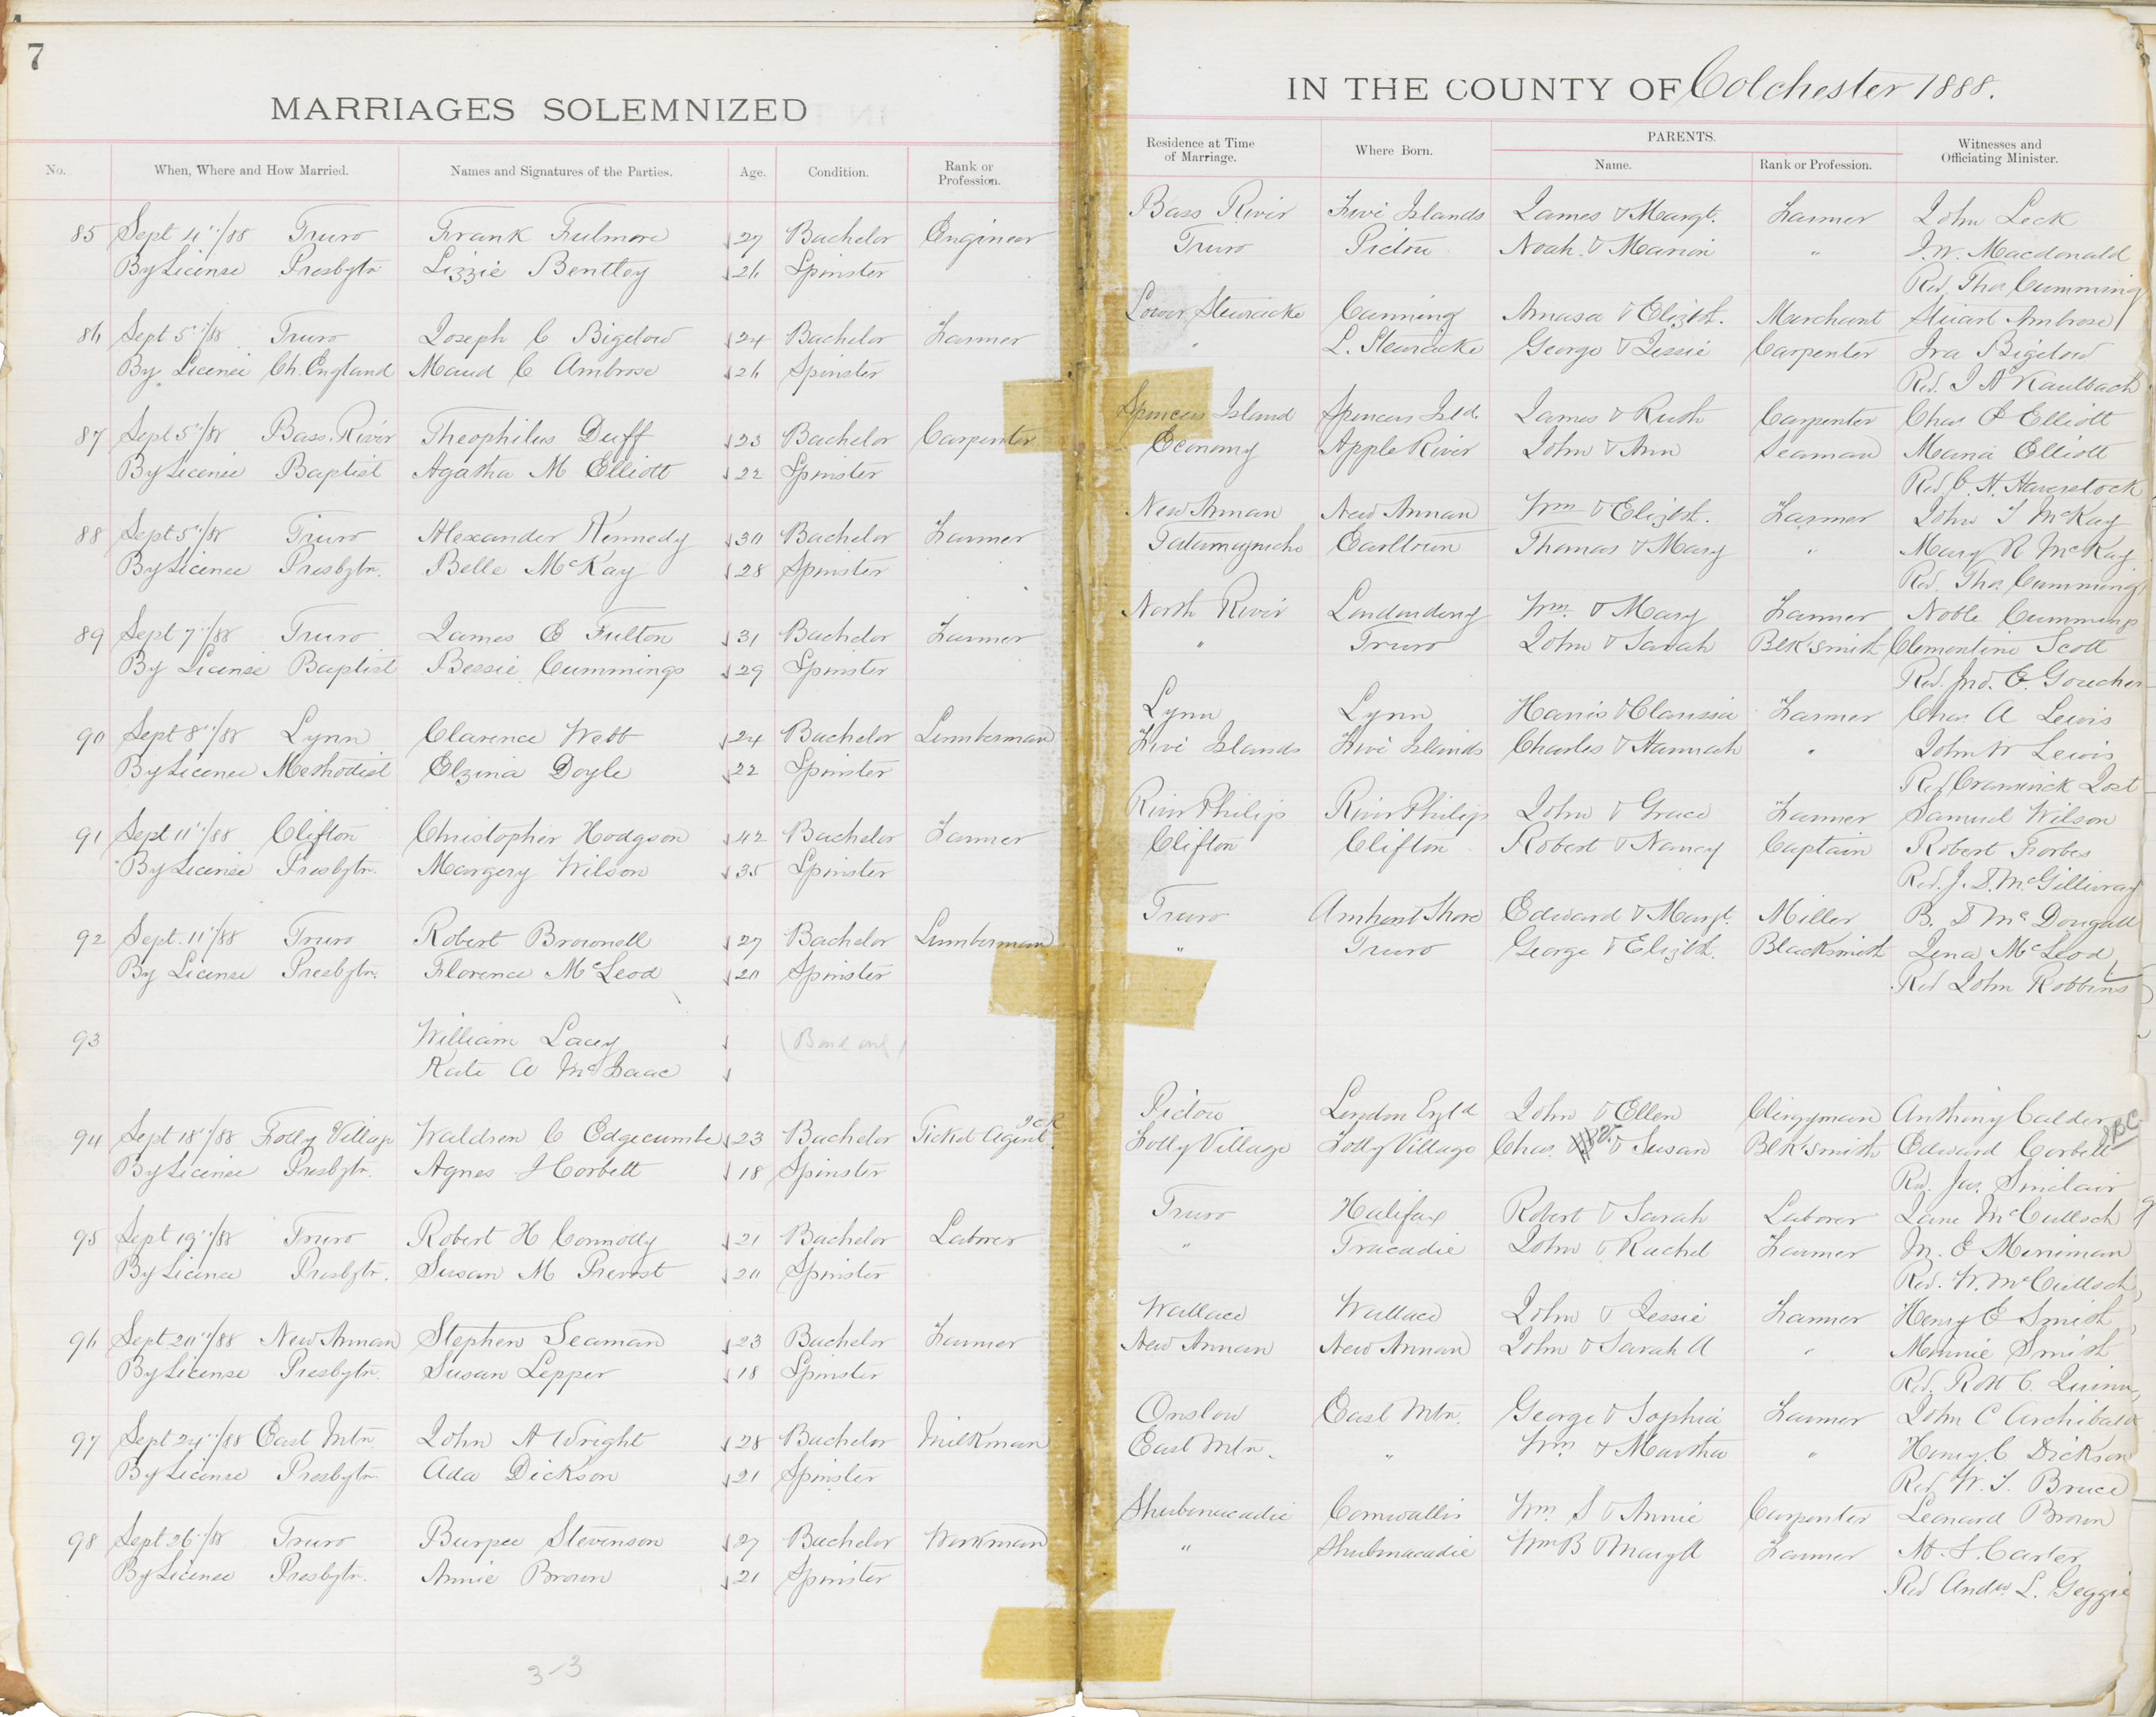 7
MARRIAGES SOLEMNIZED
IN THE COUNTY OF Colchester 1888.
No. When, Where and How Married. Names and Signatures of the Parties. Age. Condition. Rank or Profession. Residence at Time of Marriage. Where Born. PARENTS. Name. Rank or Profession. Witnesses and Officiating Minister.
85 Sept 4"/88 Truro Frank Fulmore 27 Bachelor Engineer Bass River Five Islands James & Margt. Farmer John Leck
By License Presbytn Lizzie Bentley 26 Spinster Truro Pictou Noah & Marion " J. W. Macdonald
Rev. Thos Cumming
86 Sept 5"/88 Truro Joseph C Bigelow 24 Bachelor Farmer Lower Stewiacke Canning Amasa & Elizbt. Merchant Stuart Ambrose
By License Ch. England Maud C Ambrose 26 Spinster " L. Stewiacke George & Jessie Carpenter Ira Bigelow
Rev. J A Kaulbach
87 Sept 5"/88 Bass River Theophilus Duff 23 Bachelor Carpenter Spencers Island Spencers Isld. James & Ruth Carpenter Chas Elliott
By License Baptist Agatha M Elliott 22 Spinster Economy Apple River John & Ann Seaman Maria Elliott
Rev. C. H. Haverstock
88 Sept 5"/88 Truro Alexander Kennedy 30 Bachelor Farmer New Annan New Annan Wm & Elizbt. Farmer John J McKay
By License Presbytn. Belle McKay 28 Spinster Tatamagouche Earltown Thomas & Mary " Mary R McKay
Rev. Thos Cumming
89 Sept 7"/88 Truro James E Fulton 31 Bachelor Farmer North River Londonderry Wm & Mary Farmer Noble Cummings
By License Baptist Bessie Cummings 29 Spinster " Truro John & Sarah Blksmith Clementine Scott
Rev. Jno. E. Goucher
90 Sept 8"/88 Lynn Clarence Webb 24 Bachelor Lumberman Lynn Lynn Harris & Clarissa Farmer Chas A Lewis
By License Methodist Elzina Doyle 22 Spinster Five Islands Five Islands Charles & Hannah " John W Lewis
Rev Craswick Jost
91 Sept 11"/88 Clifton Christopher Hodgson 42 Bachelor Farmer River Philip River Philip John & Grace Farmer Samuel Wilson
By License Presbytn. Margery Wilson 35 Spinster Clifton Clifton Robert & Nancy Captain Robert Forbes
Rev. J. D. McGillivray
92 Sept. 11"/88 Truro Robert Brownell 27 Bachelor Lumberman Truro Amherst Shore Edward & Margt. Miller B. D McDougall
By License Presbytn. Florence McLeod 20 Spinster " Truro George & Elizbt. Blacksmith Lena McLeod
Rev John Robbins
93 William Lacey (Bond only)
Kate A McIsaac
94 Sept 18"/88 Folly Village Waldren C Edgecumbe 23 Bachelor Ticket Agent I C R Pictou London Engld John & Ellen Clergyman Anthony Calder
By License Presbytn. Agnes J Corbett 18 Spinster Folly Village Folly Village Chas. & Susan Blksmith Edward Corbett
Rev. Jas. Sinclair
95 Sept 19"/88 Truro Robert H Connolly 21 Bachelor Laborer Truro Halifax Robert & Sarah Laborer Jane McCulloch
By License Presbytn. Susan M Prevost 20 Spinster " Tracadie John & Rachel Farmer M. E Merriman
Rev. W. McCulloch
96 Sept 20"/88 New Annan Stephen Seaman 23 Bachelor Farmer Wallace Wallace John & Jessie Farmer Henry E Smith
By License Presbytn. Susan Lepper 18 Spinster New Annan New Annan John & Sarah A " Minnie Smith
Rev. Robt C. Quinn
97 Sept 24"/88 East Mtn John A Wright 28 Bachelor Milkman Onslow East Mtn. George & Sophia Farmer John C Archibald
By License Presbytn Ada Dickson 21 Spinster East Mtn. " Wm & Martha " Henry C Dickson
Rev W. T. Bruce
98 Sept 26"/88 Truro Burpee Stevenson 27 Bachelor Workman Shubenacadie Cornwallis Wm. S & Annie Carpenter Leonard Brown
By License Presbytn. Annie Brown 21 Spinster " Shubenacadie Wm B & Mary A Farmer M. S. Carter
Rev Andw. L. Geggie
3-3